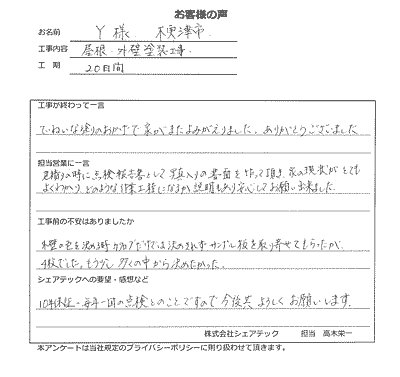 お客様の声
お名前 Y様 木更津市
工事内容 屋根・外壁塗装工事
工期 20日間
工事が終わって一言
ていねいな塗りのおかげで家がまたよみがえりました。ありがとうございました
担当営業に一言
見積りの時に点検報告書として写真入りの書面を作って頂き、家の現実がとても
よくわかり、どのような作業工程になるか説明もあり安心してお願い出来ました。
工事前の不安はありましたか
外壁の色を決める時カタログだけでは決められずサンプル板を取り寄せてもらったが、
4枚でした。もう少し多くの中から決めたかった。
シェアテックへの要望・感想など
10年保証、毎年一回の点検とのことですので今後共よろしくお願いします。
株式会社シェアテック 担当 高木栄一
本アンケートは当社規定のプライバシーポリシーに則り扱わせて頂きます。